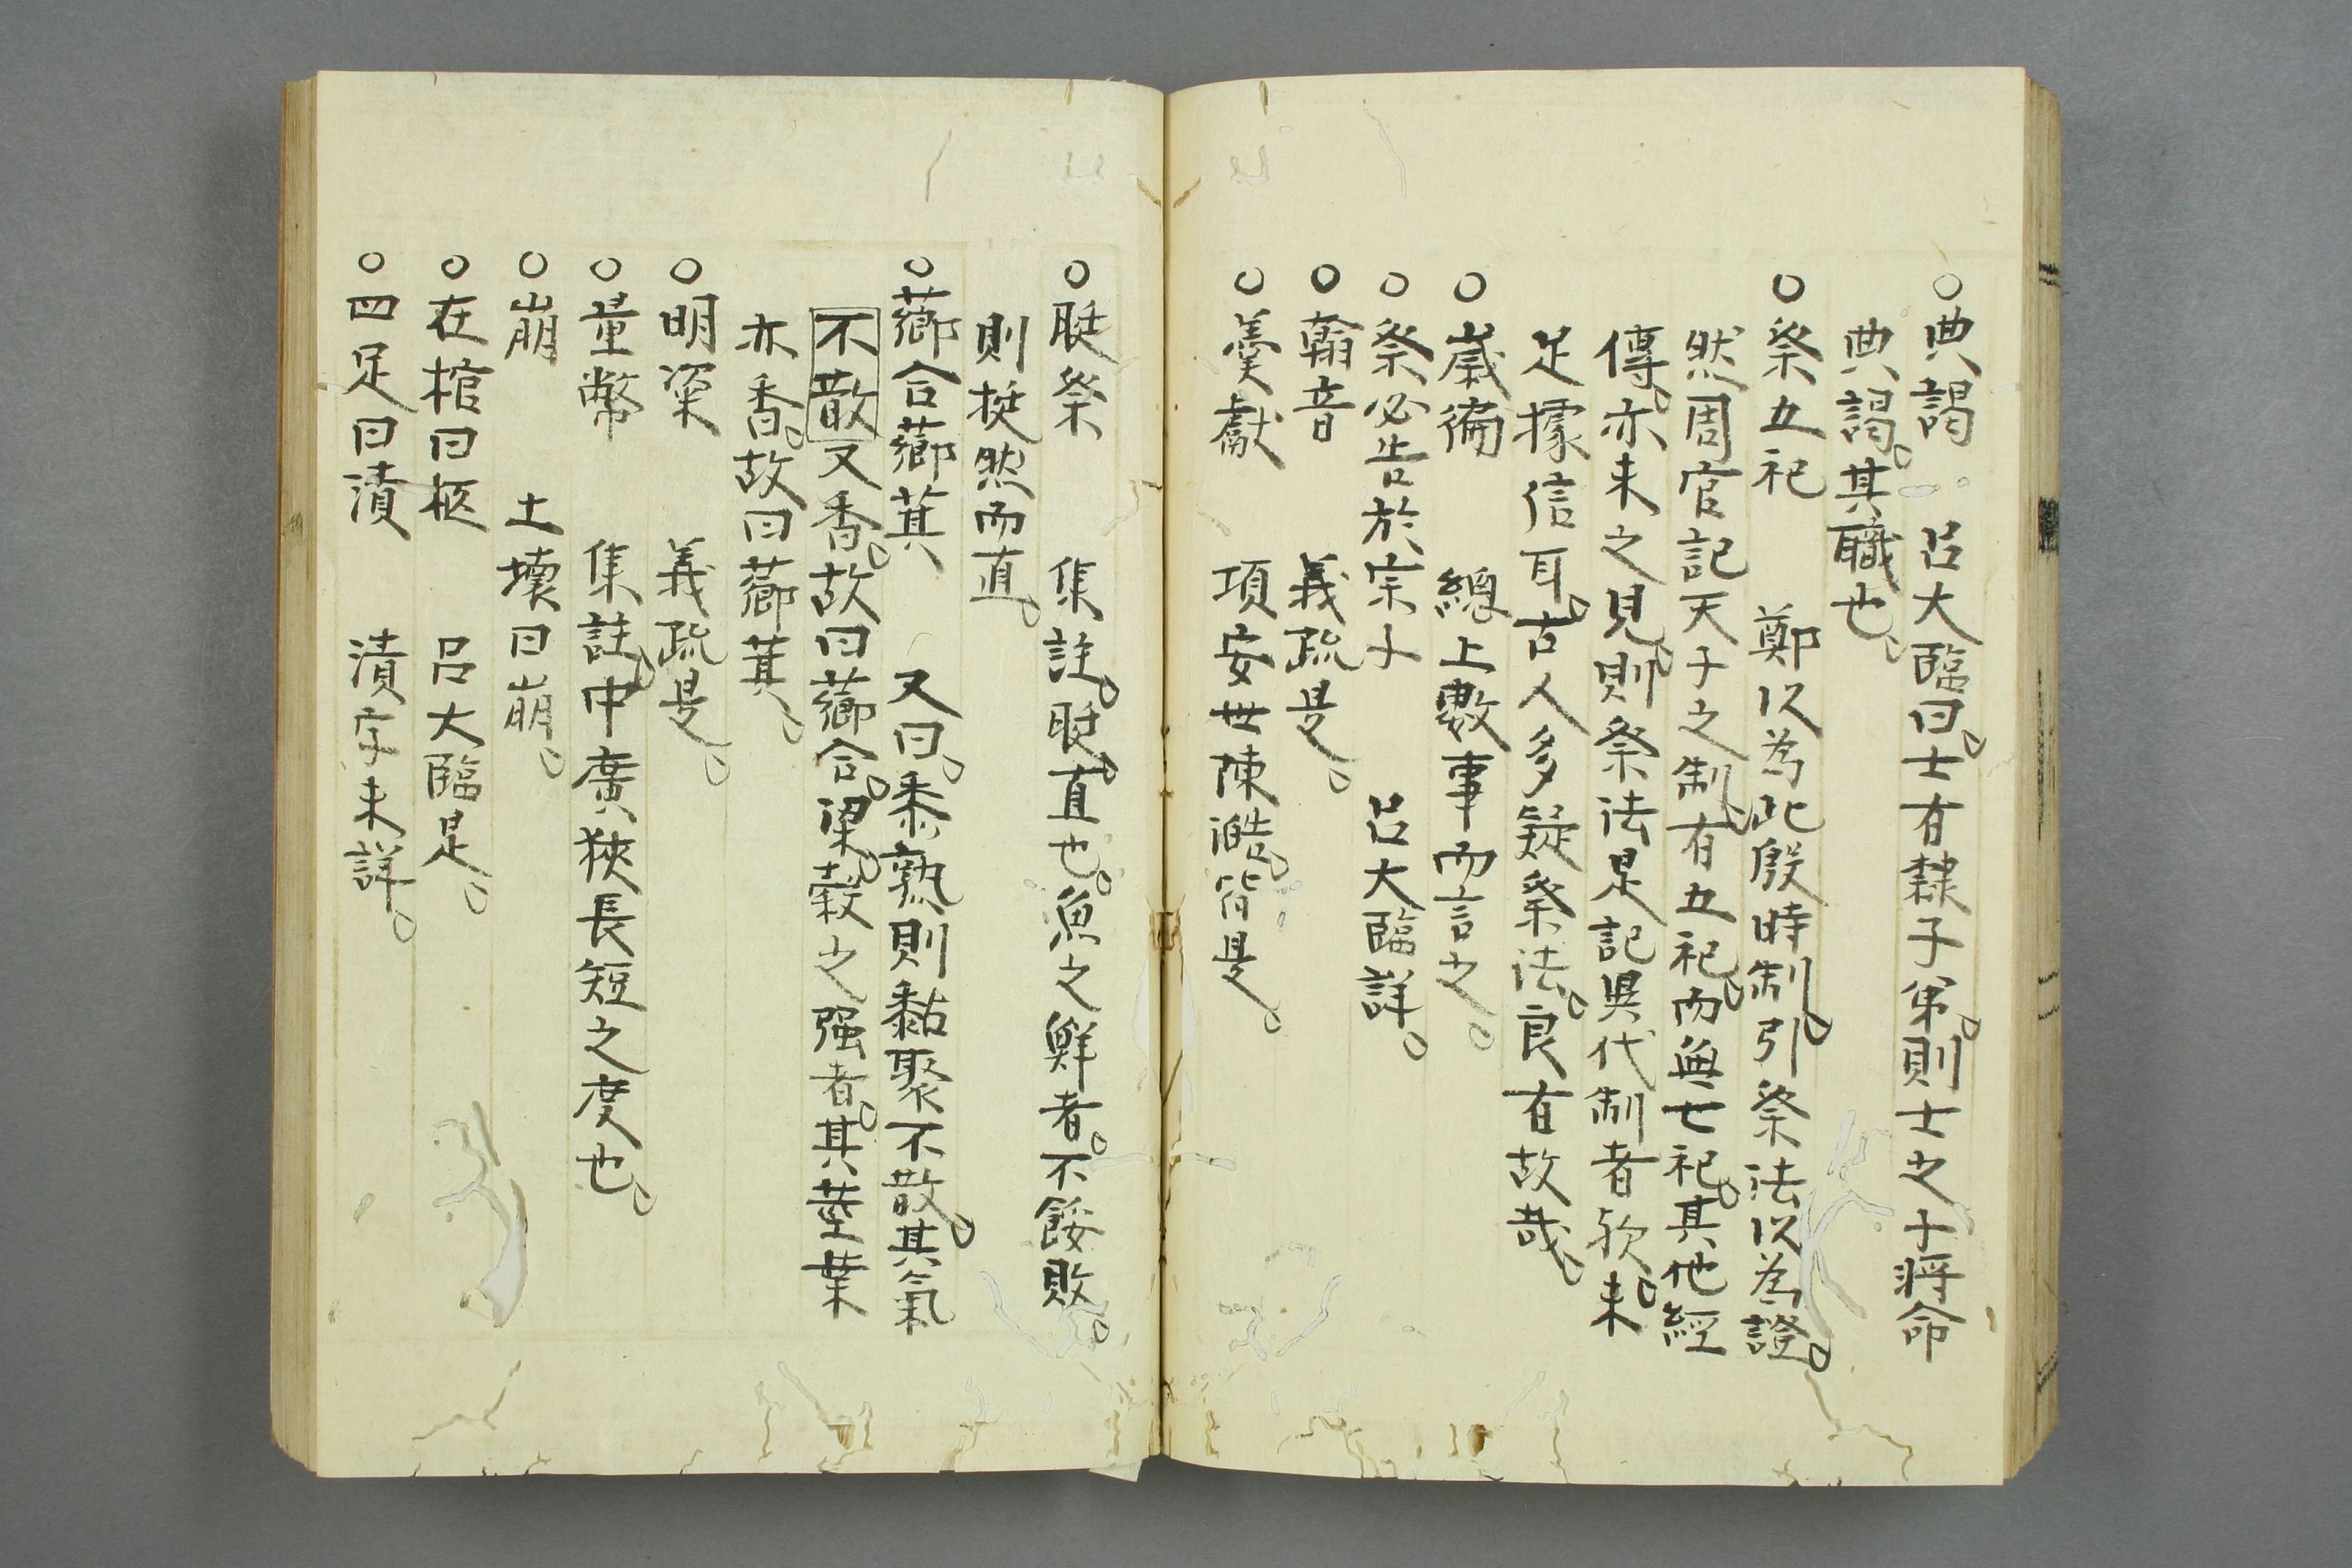 ○典謁　呂大臨曰。士有隷子弟。則士之子將命
典謁。其職也。
○祭五祀　鄭以為此殷時制。引祭法以為證。
然周官記天子之制。有五祀。而無七祀。其他經
傳。亦未之見。則祭法是記異代制者歟。未
足據信耳。古人多疑祭法。良有故哉。
○歳徧　緫上數事而言之。
○祭必告於宗子　呂大臨詳。
○翰音　義疏是。
○羹獻　項安世陳澔。皆是。
○脡祭　集註。脡。直也。魚之鮮者。不餒敗。
則挺然而直。
○薌合薌萁　又曰。黍熟則黏聚不散。其氣
不散又香。故曰薌合。梁。穀之强者。其莖葉
亦香。故曰薌萁。
○明粢　義疏是。
○量幣　集註。中廣狹長短之度也。
○崩　土壞曰崩。
○在棺曰柩　呂大臨是。
○四足曰漬　漬字未詳。